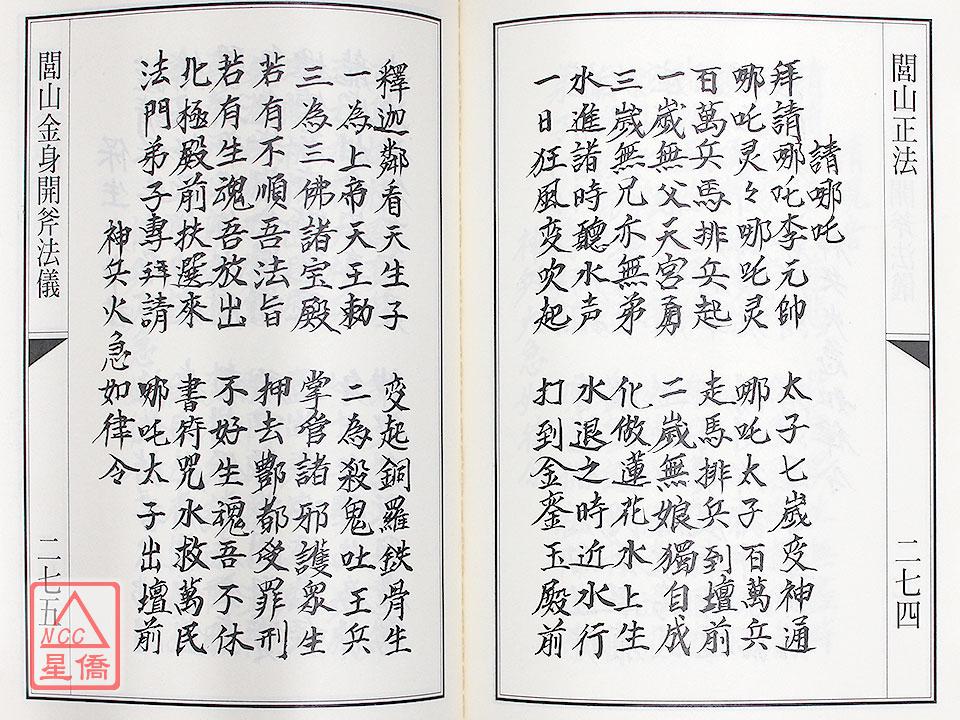 閭山正法
二七四
請哪吒
拜請哪吒李元帥 太子七歲变神通
哪吒灵々哪吒灵 哪吒太子百萬兵
百萬兵馬排兵起 走馬排兵到壇前
一歲無父天宮勇 二歲無娘獨自成
三歲無兄亦無弟 化做蓮花水上生
水進諸時聽水声 水退之時近水行
一日狂風变吹起 打到金銮玉殿前
釋迦鄰看天生子 变起銅羅鉄骨生
一為上帝天王勅 二為殺鬼吐王兵
三為三佛諸宝殿 掌管諸邪護眾生
若有不順吾法旨 押去酆都受罪刑
若有生魂吾放出 不好生魂吾不休
北極殿前扶選來 書符咒水救萬民
法門弟子專拜請 哪吒太子出壇前
神兵火急如律令
閭山金身開斧法儀
二七五
NCC
星僑